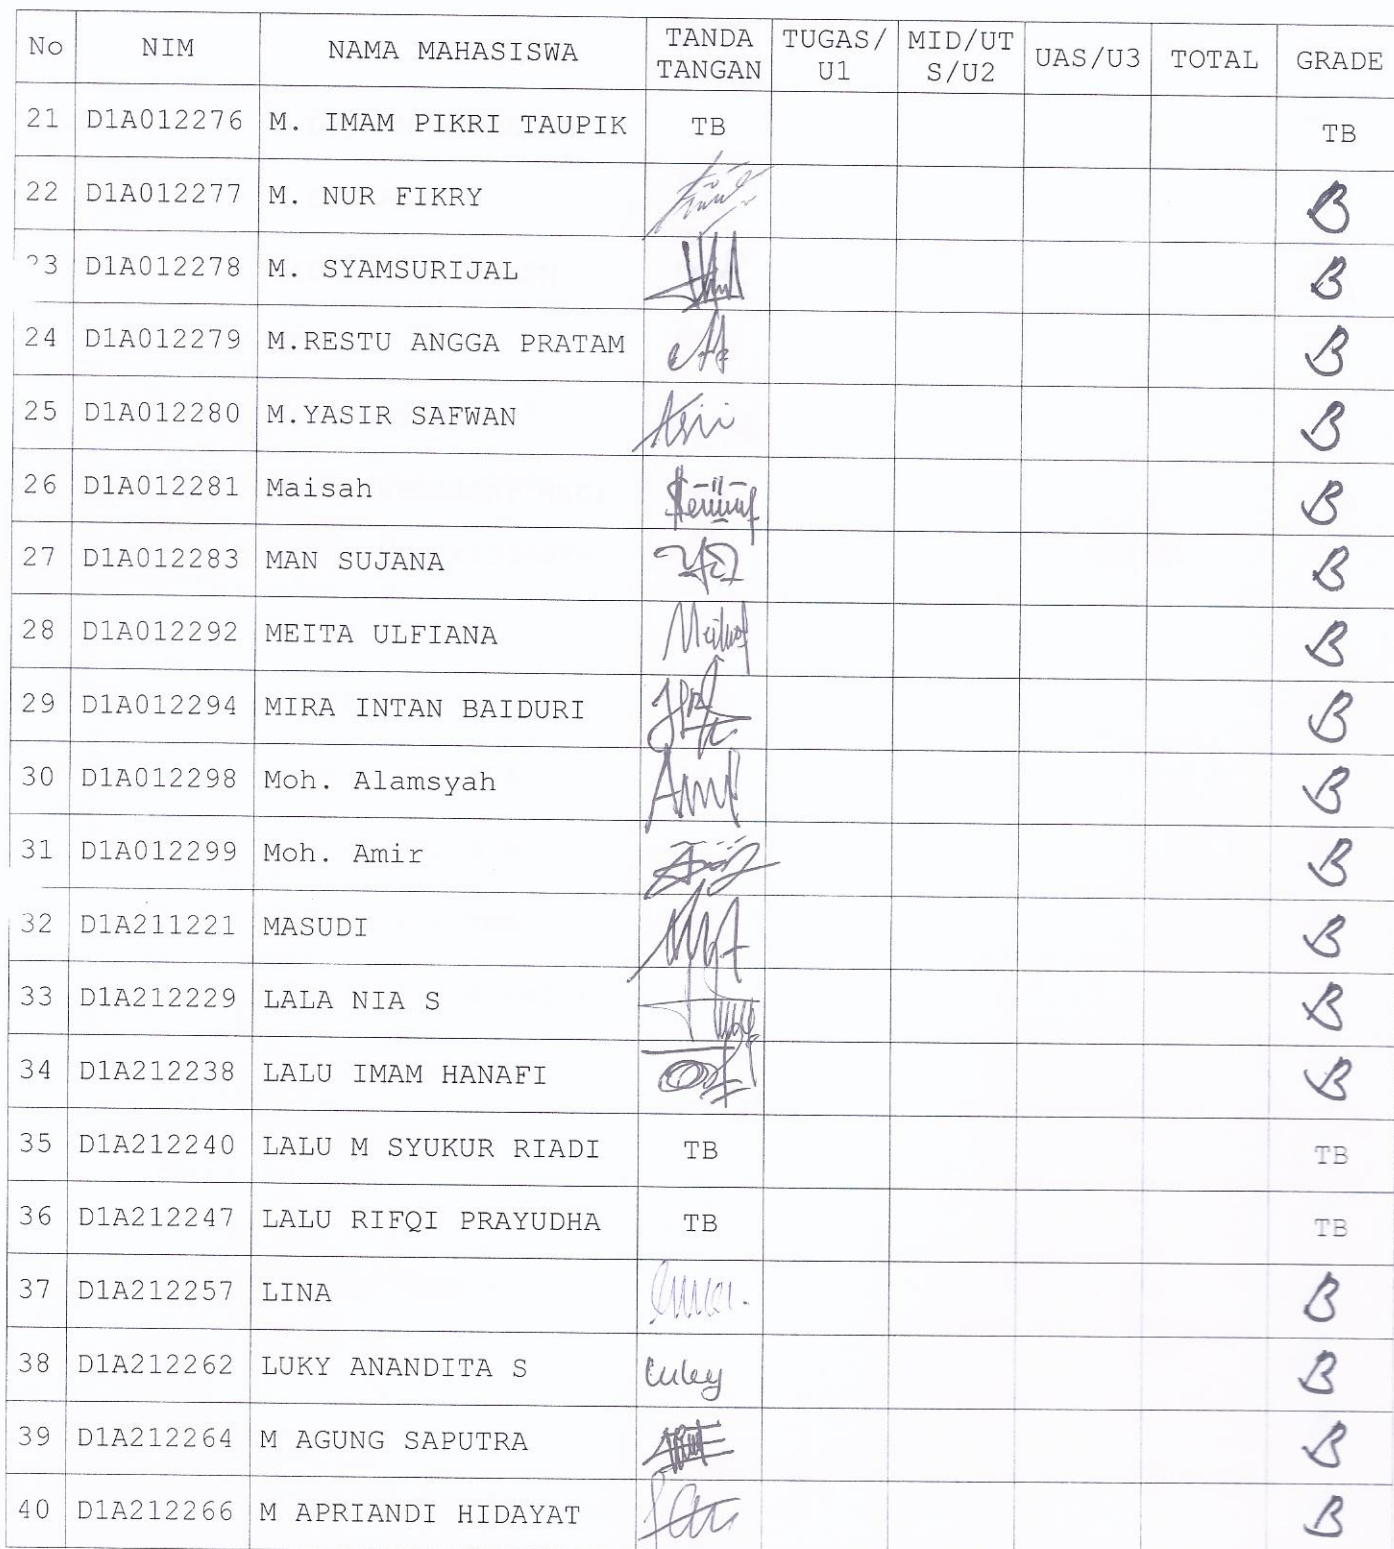 No NIM NAMA MAHASISWA TANDA TANGAN TUGAS/U1 MID/UTS/U2 UAS/U3 TOTAL GRADE
21 D1A012276 M. IMAM PIKRI TAUPIK TB TB
22 D1A012277 M. NUR FIKRY B
23 D1A012278 M. SYAMSURIJAL B
24 D1A012279 M.RESTU ANGGA PRATAM B
25 D1A012280 M.YASIR SAFWAN B
26 D1A012281 Maisah B
27 D1A012283 MAN SUJANA B
28 D1A012292 MEITA ULFIANA B
29 D1A012294 MIRA INTAN BAIDURI B
30 D1A012298 Moh. Alamsyah B
31 D1A012299 Moh. Amir B
32 D1A211221 MASUDI B
33 D1A212229 LALA NIA S B
34 D1A212238 LALU IMAM HANAFI B
35 D1A212240 LALU M SYUKUR RIADI TB TB
36 D1A212247 LALU RIFQI PRAYUDHA TB TB
37 D1A212257 LINA B
38 D1A212262 LUKY ANANDITA S B
39 D1A212264 M AGUNG SAPUTRA B
40 D1A212266 M APRIANDI HIDAYAT B